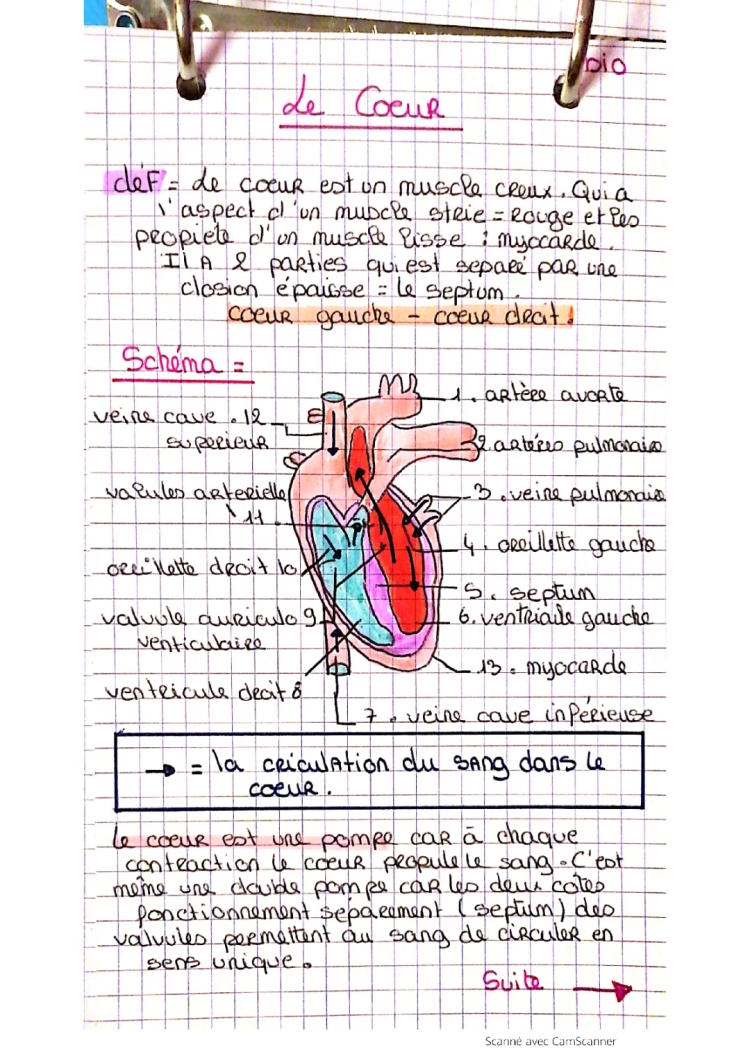 bio
Le Coeur
déf = Le coeur est un muscle creux. Qui a
l'aspect d'un muscle strie = Rouge et les
propiete d'un muscle lisse : myocarde.
Il A 2 parties qui est separé par une
closion épaisse = le septum.
coeur gauche - coeur droit.
Schéma =
1. artère avorte
veine cave . 12
superieur
2. artéres pulmonaire
valules arterielle
11.
3. veine pulmonaire
4. oreillette gauche
oreillette droit 10
5. septum
valvule auriculo 9
venticulaire
6. ventriaule gauche
13. myocarde
ventricule droit 8
7. veine cave inférieuse
→ = la criculation du sang dans le
coeur.
Le coeur est une pompe car à chaque
contraction le coeur propule le sang. C'est
même une double pompe car les deux cotes
fonctionnement séparement (septum) des
valvules permettent au sang de circuler en
sens unique.
Suite →
Scanné avec CamScanner